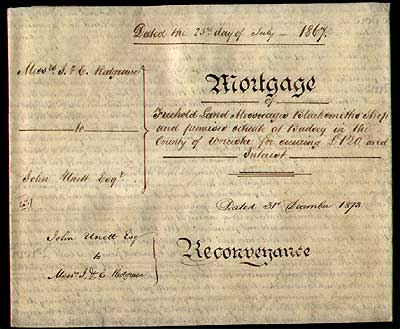 Dated the 25th day of July — 1867.
Messrs J. & E. Redgrave
to
John Unett Esqr
Mortgage
of
Freehold Land Messuages Blacksmiths Shop
and premises situate at Badsey in the
County of Worcester for securing £120 and
Interest
Dated 31st December 1873
John Unett Esq
to
Messrs J. & E. Redgrave
Reconveyance